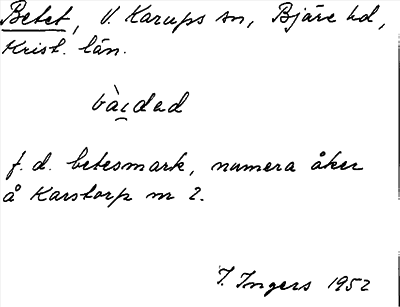 Betet, V. Karups sn, Bjäre hd,
Krist. län.
bài̯dəd
f.d. betesmark, numera åker
å Karstorp nr 2.
I. Ingers 1952